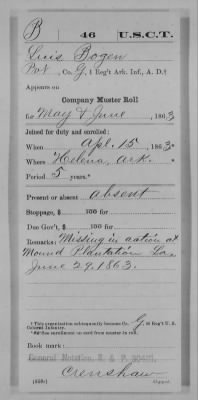 B 46 U.S.C.T.
Luis Bogen
Pvt, Co. G, 1 Reg't Ark. Inf., A. D.†
Appears on
Company Muster Roll
for May & June, 1863
Joined for duty and enrolled:
When Apl. 15, 1863
Where Helena, Ark.
Period 5 years.*
Present or absent absent
Stoppage, $ 100 for
Due Gov't, $ 100 for
Remarks: Missing in action at
Mound Plantation La,
June 29, 1863.
† This organization subsequently became Co. G, 46 Reg't U. S.
Colored Infantry.
* See enrollment on card from muster-in roll.
Book mark:
General Notation, R. & P.
Crenshaw
Copyist.